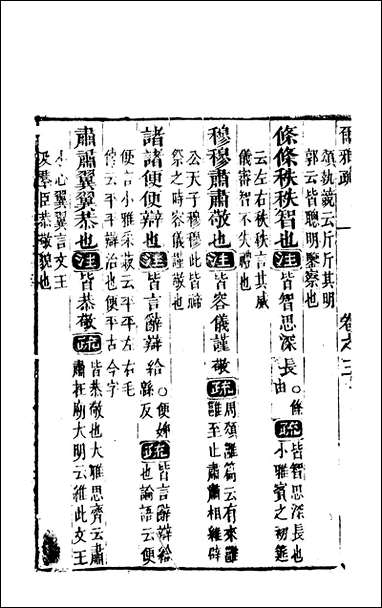 爾雅疏 卷之三
頌執競云斤斤其明
郭云皆聰明鑒察也
條條秩秩智也注皆智思深長○條由疏皆智思深長也
小雅賓之初筵
云左右秩秩言其威
儀審智不失禮也
穆穆肅肅敬也注皆容儀謹敬疏周頌雝篇云有來雝
雝至止肅肅相維辟
公天子穆穆此皆禘
祭之時容儀謹敬也
諸諸便便辯也注皆言辭辯給○便婢緜反疏皆言辭辯給
也論語云便
便言小雅采菽云平平左右毛
傳云平平辯治也便平古今字
肅肅翼翼恭也注皆恭敬疏皆恭敬也大雅思齊云肅
肅在廟大明云維此文王
小心翼翼言文王
及羣臣恭敬貌也